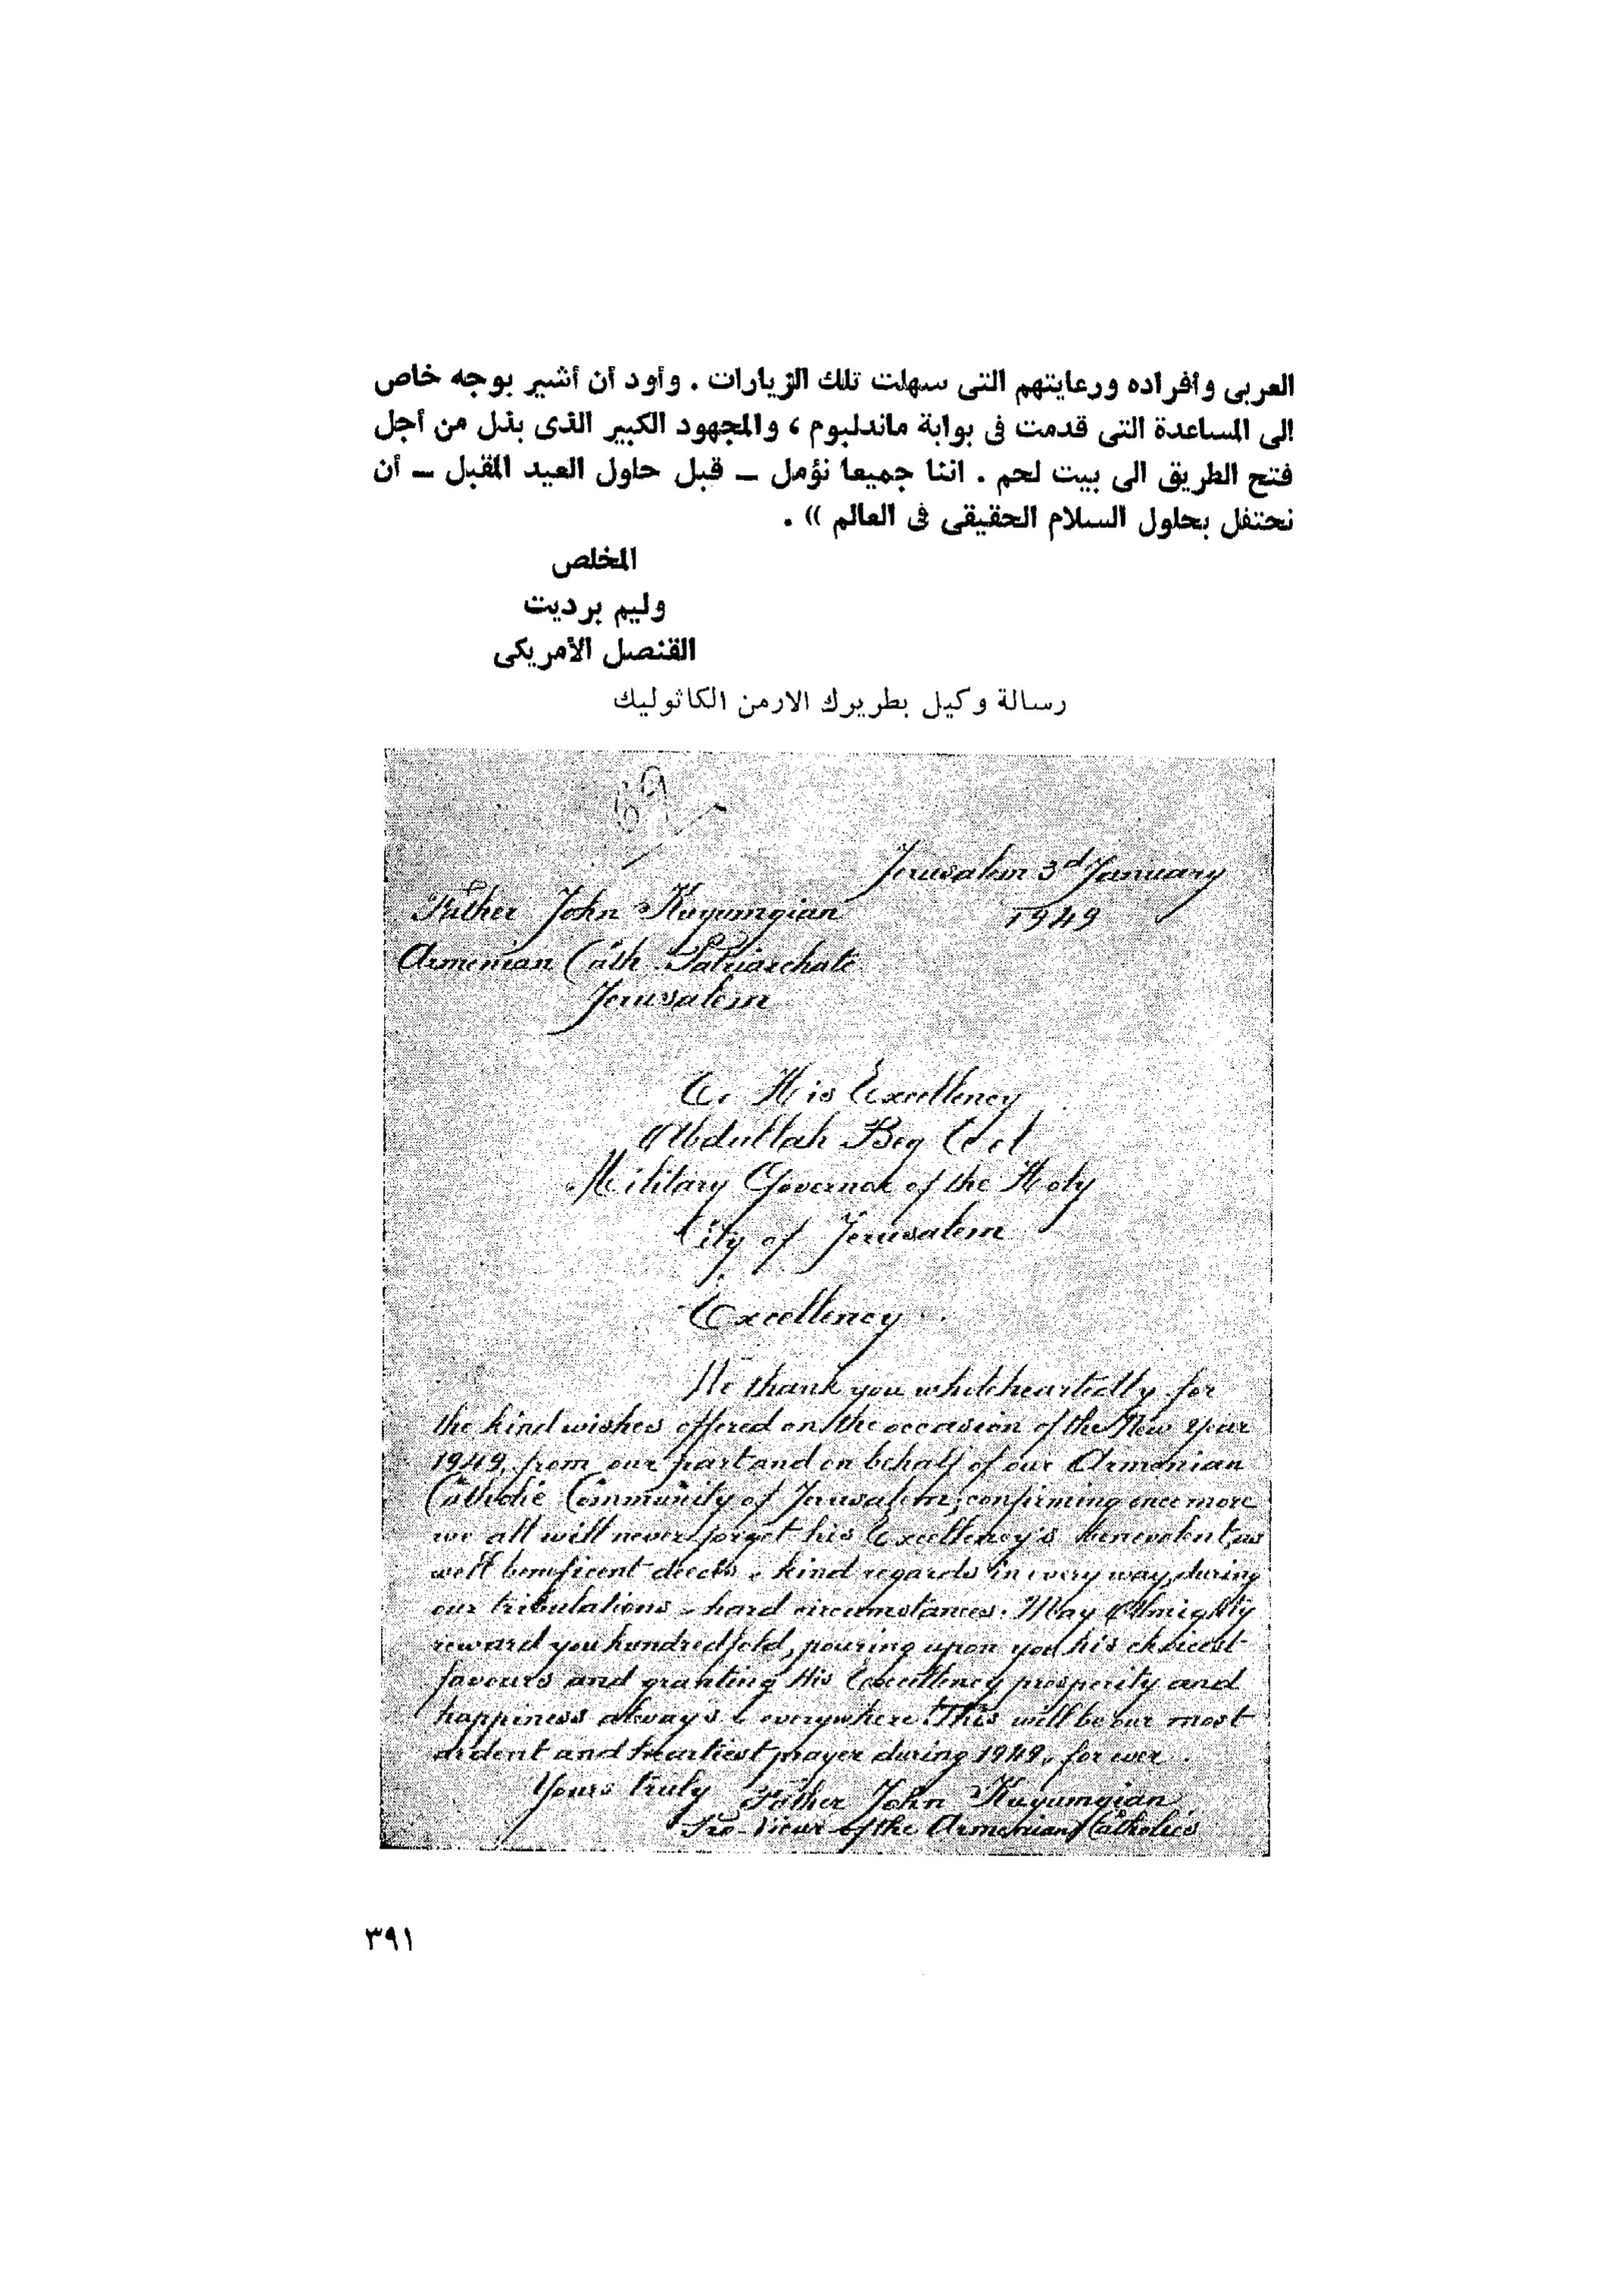 العربى وأفراده ورعايتهم التى سهلت تلك الزيارات . وأود أن أشير بوجه خاص
الى المساعدة التى قدمت فى بوابة ماندلبوم ، والمجهود الكبير الذى بذل من أجل
فتح الطريق الى بيت لحم . اننا جميعا نؤمل — قبل حلول العيد المقبل — أن
نحتفل بحلول السلام الحقيقى فى العالم )) .
المخلص
وليم برديت
القنصل الأمريكى
رسالة وكيل بطريرك الارمن الكاثوليك
Jerusalem 3d January
1949
Father John Kuyumgian
Armenian Cath. Patriarchate
Jerusalem
His Excellency
Abdullah Beg
Military Governor of the Holy
City of Jerusalem
Excellency
We thank you wholeheartedly for
the kind wishes offered on the occasion of the New Year
1949, from our part and on behalf of our Armenian
Catholic Community of Jerusalem, confirming once more
we all will never forget his Excellency's benevolent, as
well beneficent deeds & kind regards in every way, during
our tribulations & hard circumstances. May Almighty
reward you hundredfold, pouring upon you his choicest
favours and granting His Excellency prosperity and
happiness always & everywhere. This will be our most
ardent and heartiest prayer during 1949, for ever.
Yours truly Father John Kuyumgian
Pro-Vicar of the Armenian Catholics
٣٩١